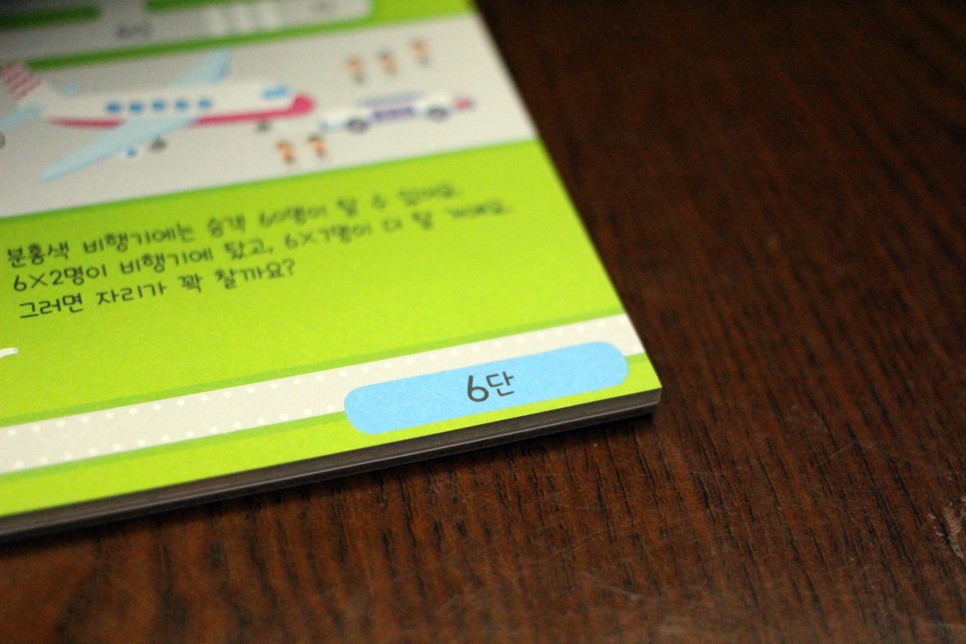 분홍색 비행기에는 승객 60명이 탈 수 있어요.
6×2명이 비행기에 탔고, 6×7명이 더 탈 거예요.
그러면 자리가 꽉 찰까요?
6단